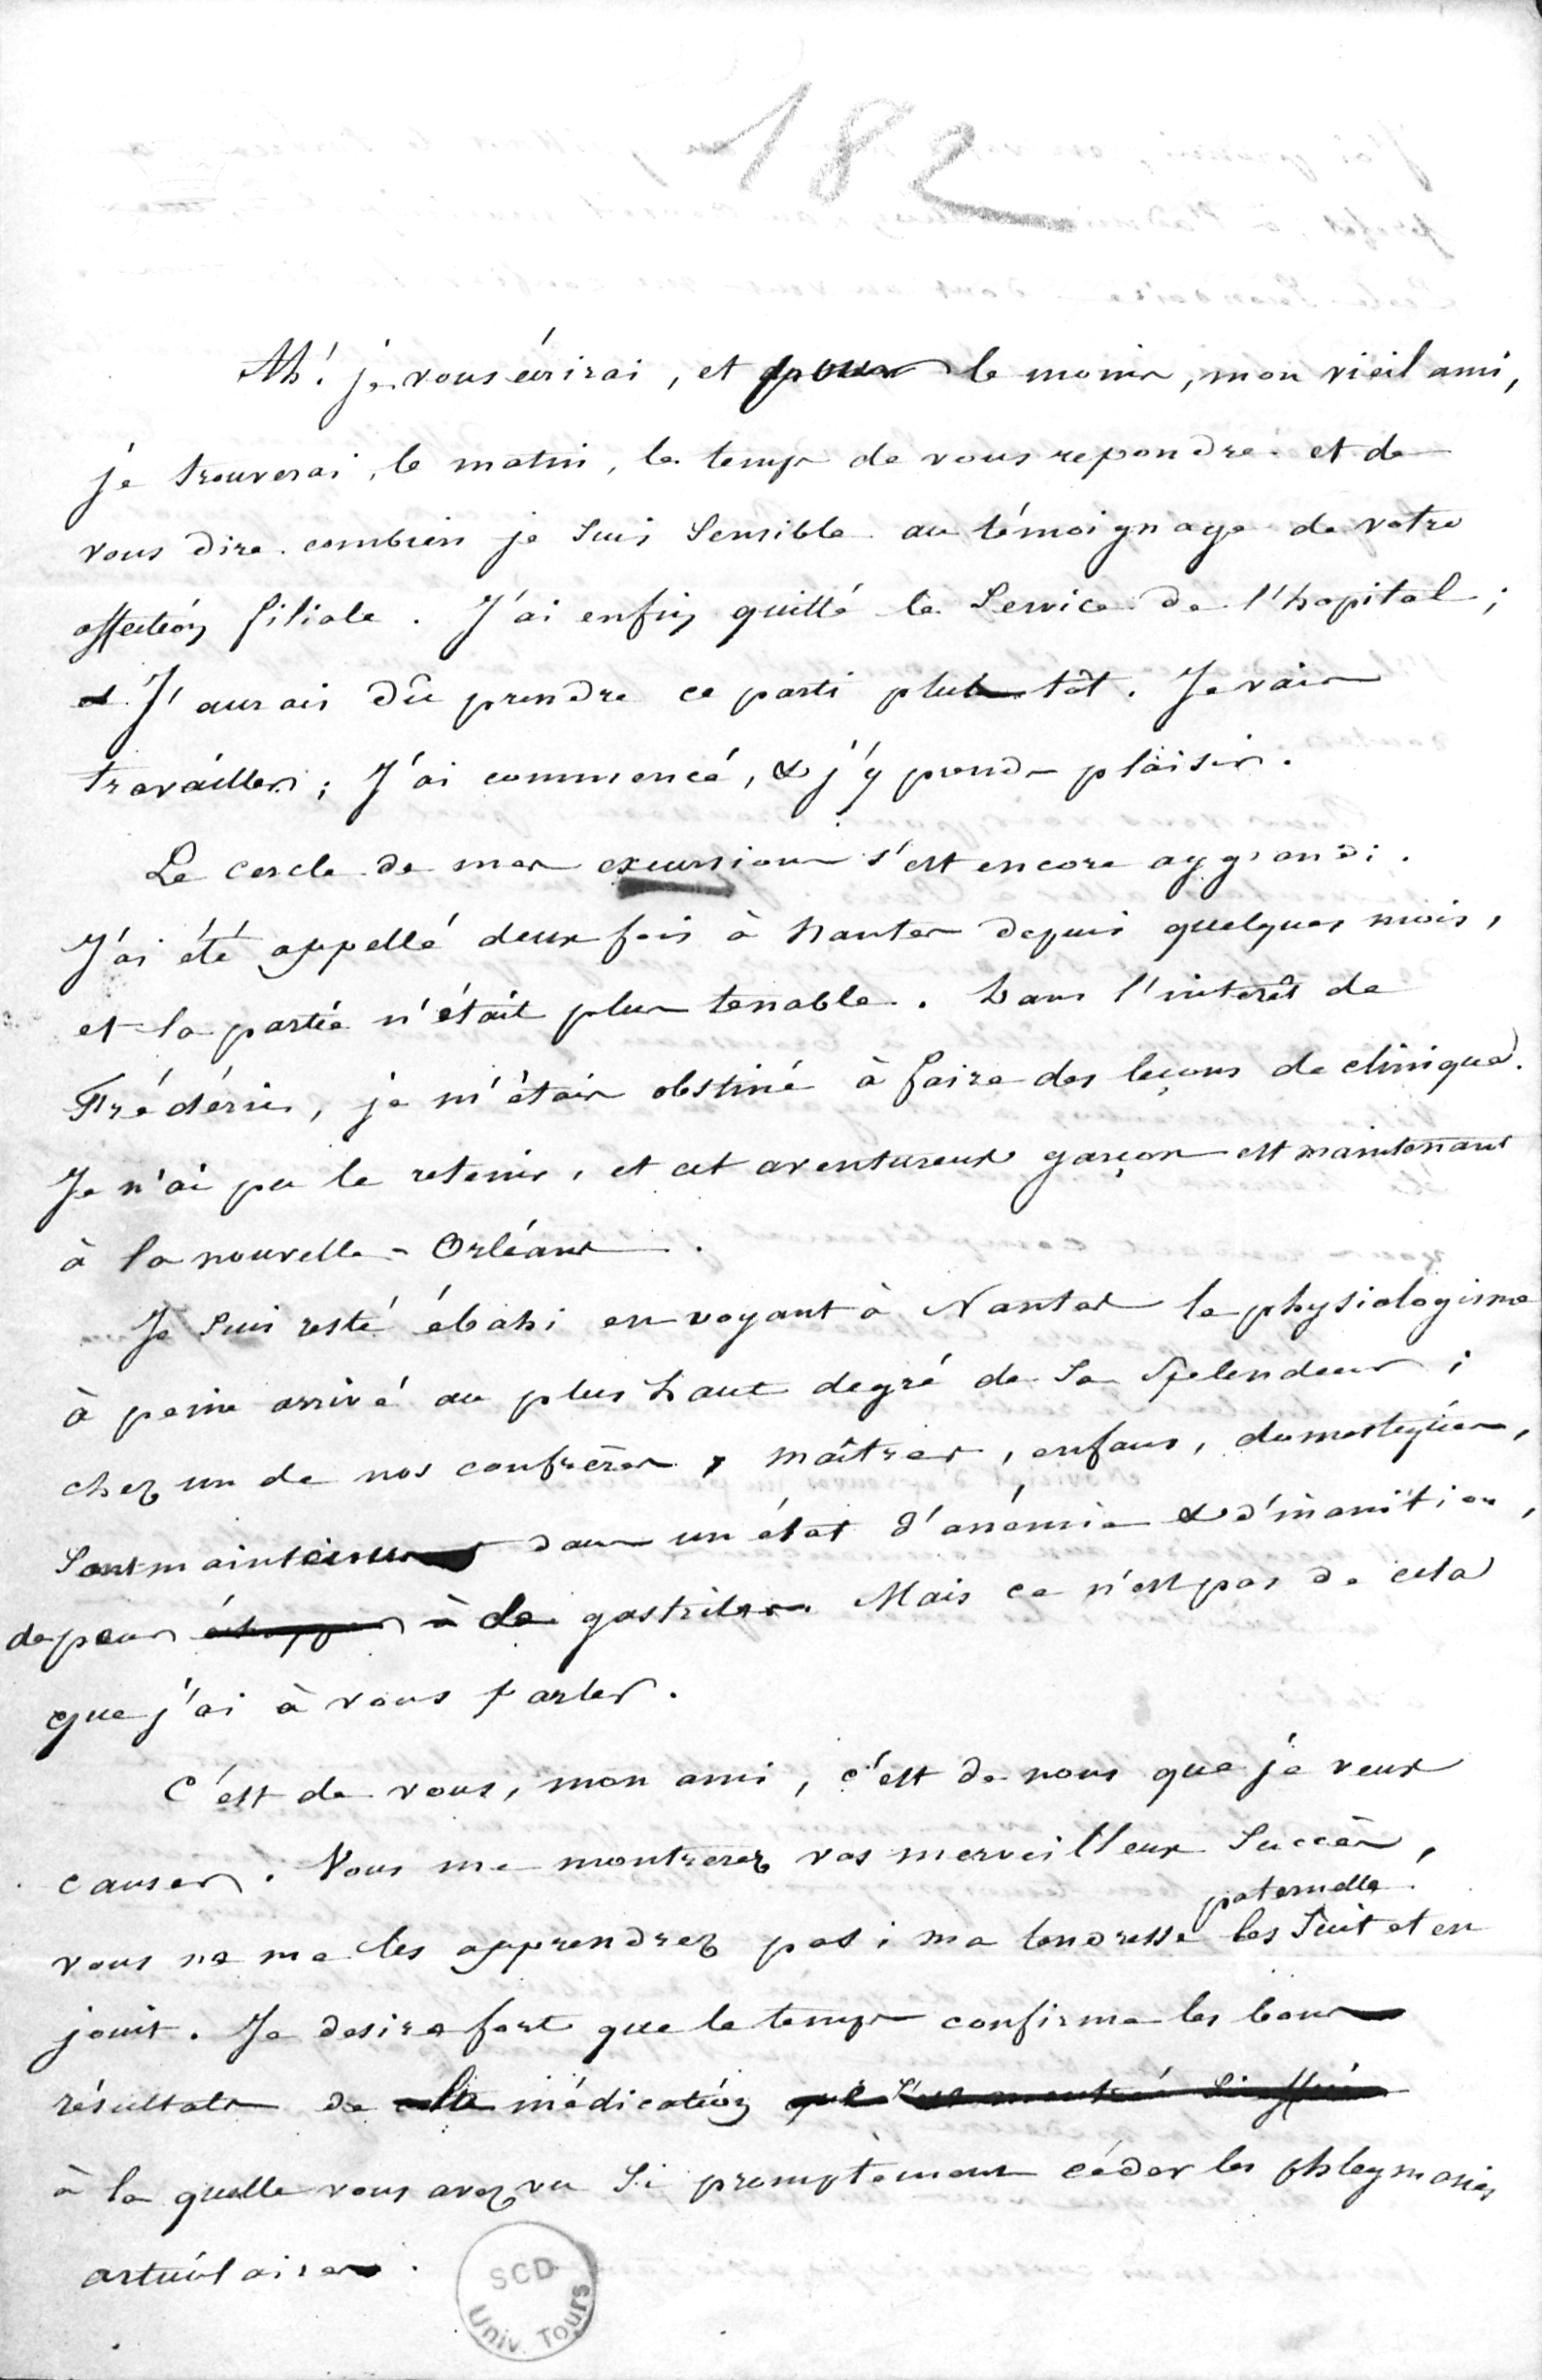 182
Ah! je vous écrirai, et pour le moins, mon vieil ami,
je trouverai, le matin, le temps de vous repondre et de
vous dire combien je suis sensible au témoignage de votre
affection filiale. J'ai enfin quitté le service de l'hopital;
& J'aurais dû prendre ce parti plutôt. Je vais
travailler; J'ai commencé, & j'y prends plaisir.
Le cercle de mes excursions s'est encore aggrandi.
J'ai été appellé deux fois à nantes depuis quelques mois,
et la partie n'était plus tenable. Dans l'interêt de
Frédéric, je m'étais obstiné à faire des leçons de clinique.
Je n'ai pu le retenir, et cet aventureux garçon est maintenant
à la nouvelle-Orléans.
Je suis resté ébahi en voyant à Nantes le physiologisme
à peine arrivé au plus haut degré de sa splendeur;
chez un de nos confrères, maîtres, enfans, domestiques,
sont maintenus dans un état d'anémie & d'inanition,
de peur de gastrites. Mais ce n'est pas de cela
que j'ai à vous parler.
C'est de vous, mon ami, c'est de nous que je veux
causer. Vous me montrerez vos merveilleux succès,
paternelle
vous ne me les apprendrez pas; ma tendresse les suit et en
jouit. Je desire fort que le temps confirme les bons
résultats de la médication
à la quelle vous avez vu si promptement céder les phlegmasies
articulaires.
SCD
Univ. Tours